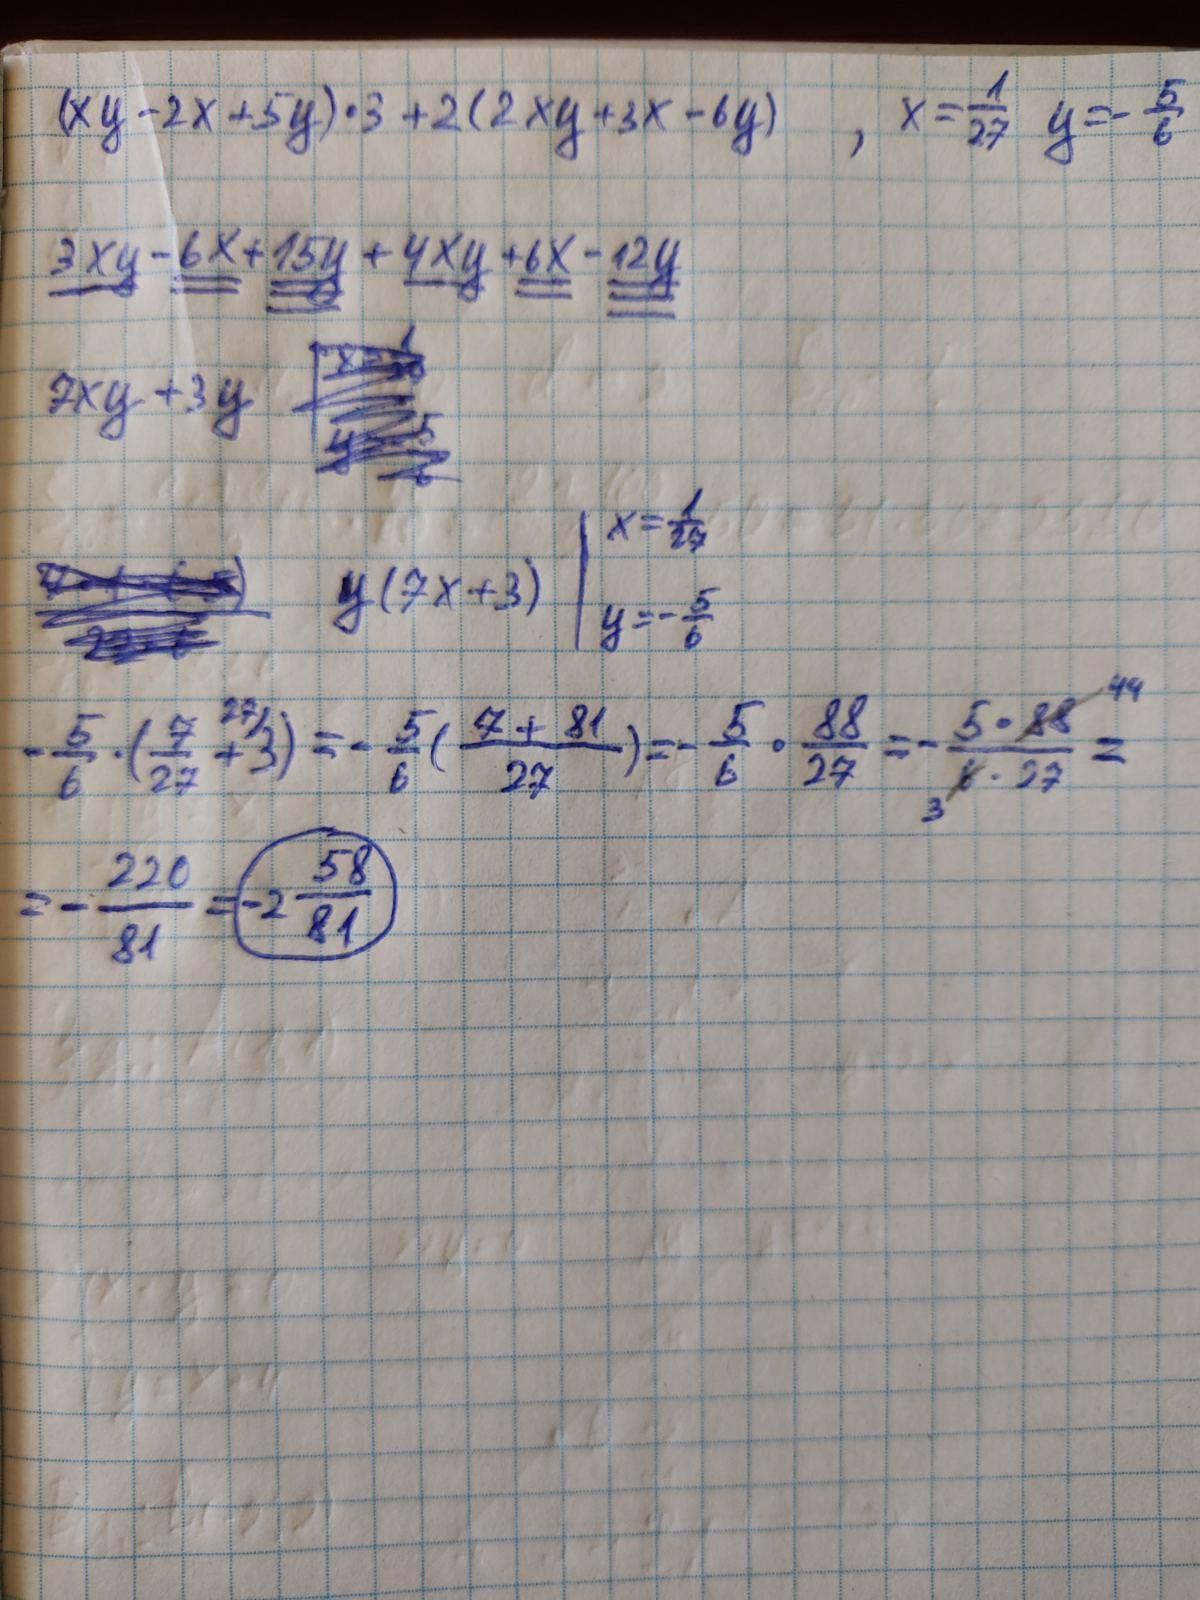 (xy-2x+5y)·3+2(2xy+3x-6y) , x=1/27 y=-5/6
3xy-6x+15y+4xy+6x-12y
7xy+3y
y(7x+3) | x=1/27
y=-5/6
-5/6·(7/27+3 27/)=-5/6((7+81)/27)=-5/6·88/27=-(5·88 44)/(6 3·27)=
=-220/81=-2 58/81